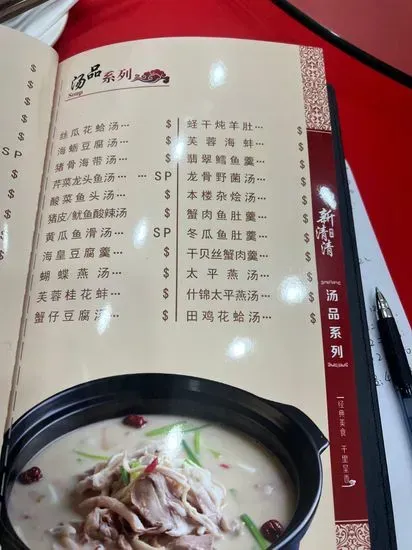 汤品系列
Soup
丝瓜花蛤汤… $
海蛎豆腐汤… $
猪骨海带汤… $
芹菜龙头鱼汤… … SP
酸菜鱼头汤… $
猪皮/鱿鱼酸辣汤 $
黄瓜鱼滑汤… SP
海皇豆腐羹… $
蝴蝶燕汤… $
芙蓉桂花蚌… $
蟹仔豆腐汤… $
蛏干炖羊肚… $
芙蓉海蚌… $
翡翠鳕鱼羹… $
龙骨野菌汤… $
本楼杂烩汤… $
蟹肉鱼肚羹… $
冬瓜鱼肚羹… $
干贝丝蟹肉羹… $
太平燕汤… $
什锦太平燕汤… $
田鸡花蛤汤… $
$
$
$
SP
$
$
SP
$
$
$
$
新清清
汤品系列
经典美食 千里呈香